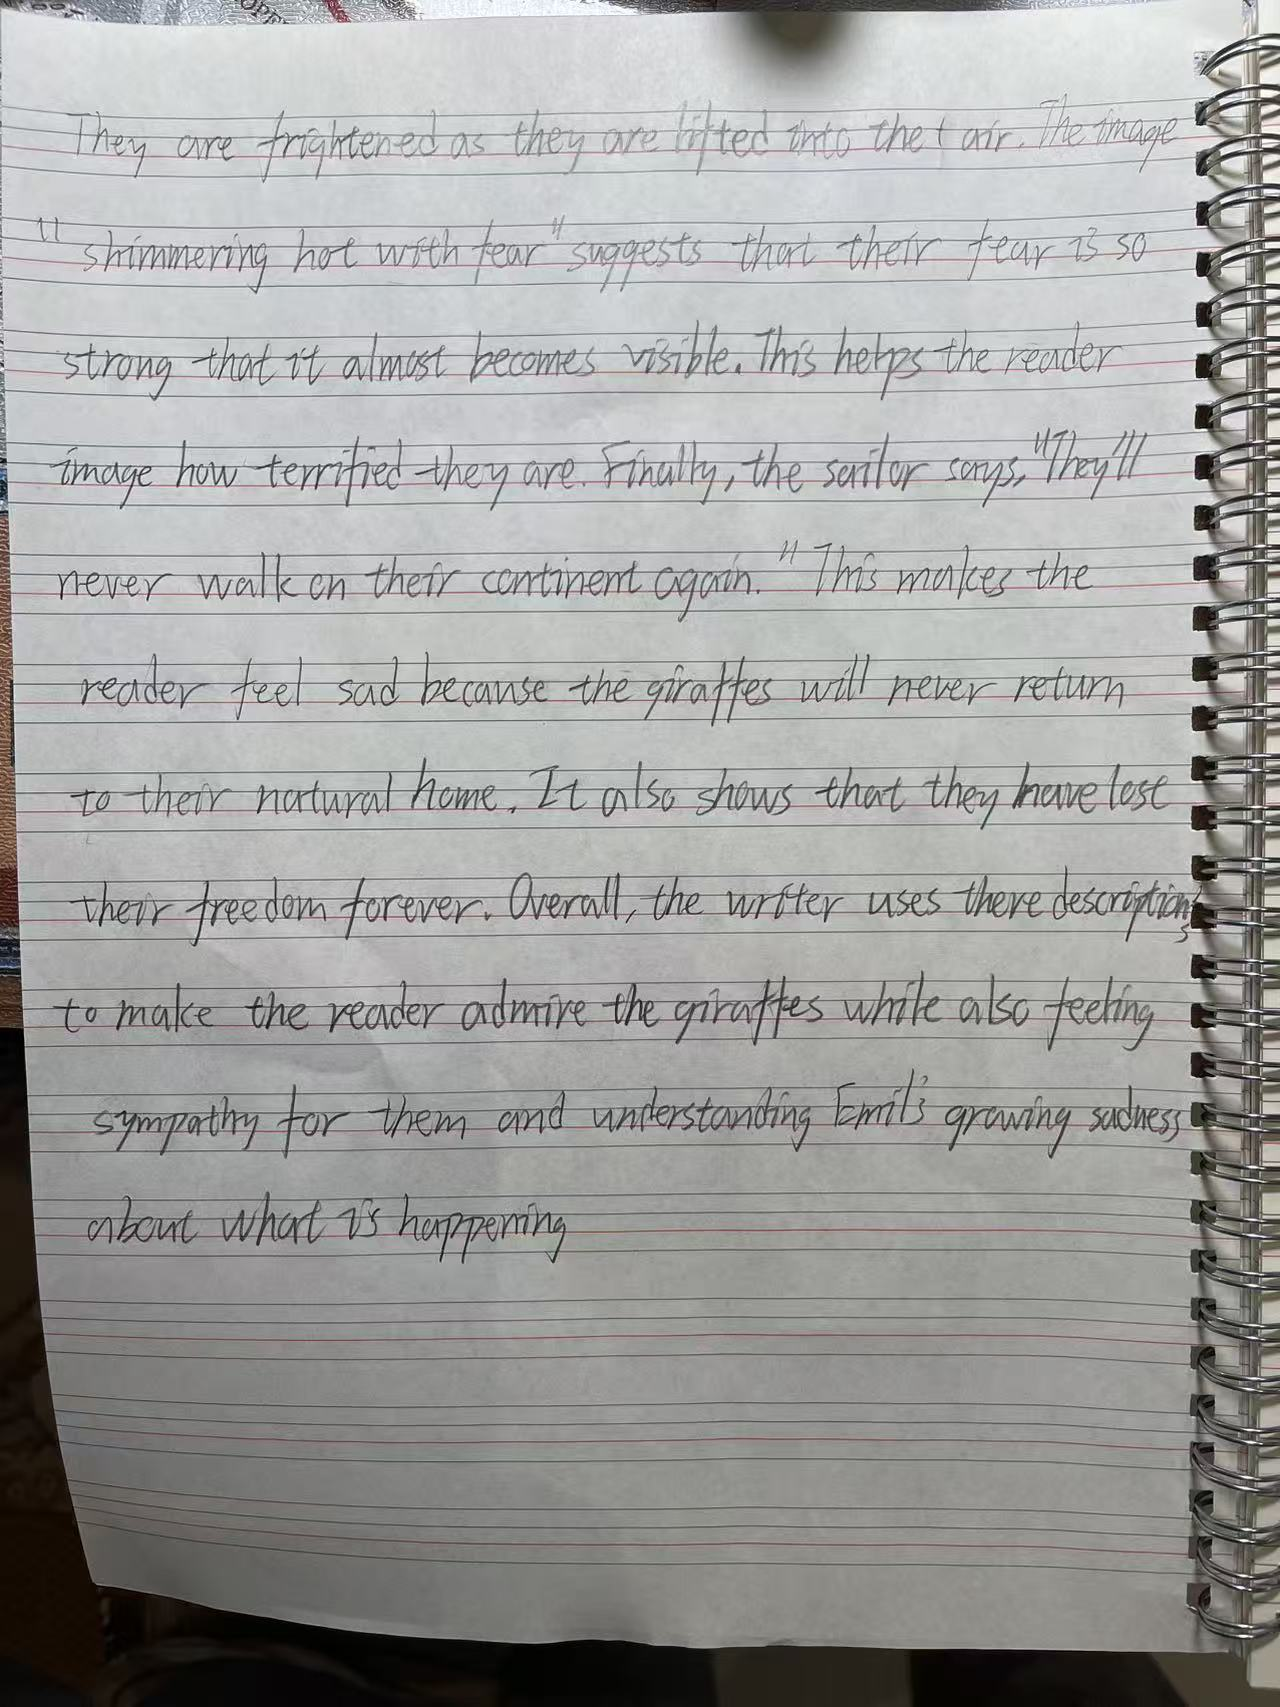 They are frightened as they are lifted into the air. The image
"shimmering hot with fear" suggests that their fear is so
strong that it almost becomes visible. This helps the reader
image how terrified they are. Finally, the sailor says, "They'll
never walk on their continent again." This makes the
reader feel sad because the giraffes will never return
to their natural home. It also shows that they have lost
their freedom forever. Overall, the writer uses there descriptions
to make the reader admire the giraffes while also feeling
sympathy for them and understanding Emil's growing sadness
about what is happening